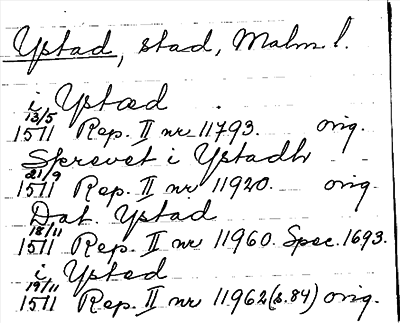 Ystad, stad, Malm. l.
i Ystæd
13/5
1511 Rep. II nr 11793. orig.
Skrevet i Ystadh
21/9
1511 Rep. II nr 11920. orig.
Dat. Ystad
18/11
1511 Rep. II nr 11960. Spec. 1693.
i Ysted
19/11
1511 Rep. II nr 11962 (s. 84) orig.